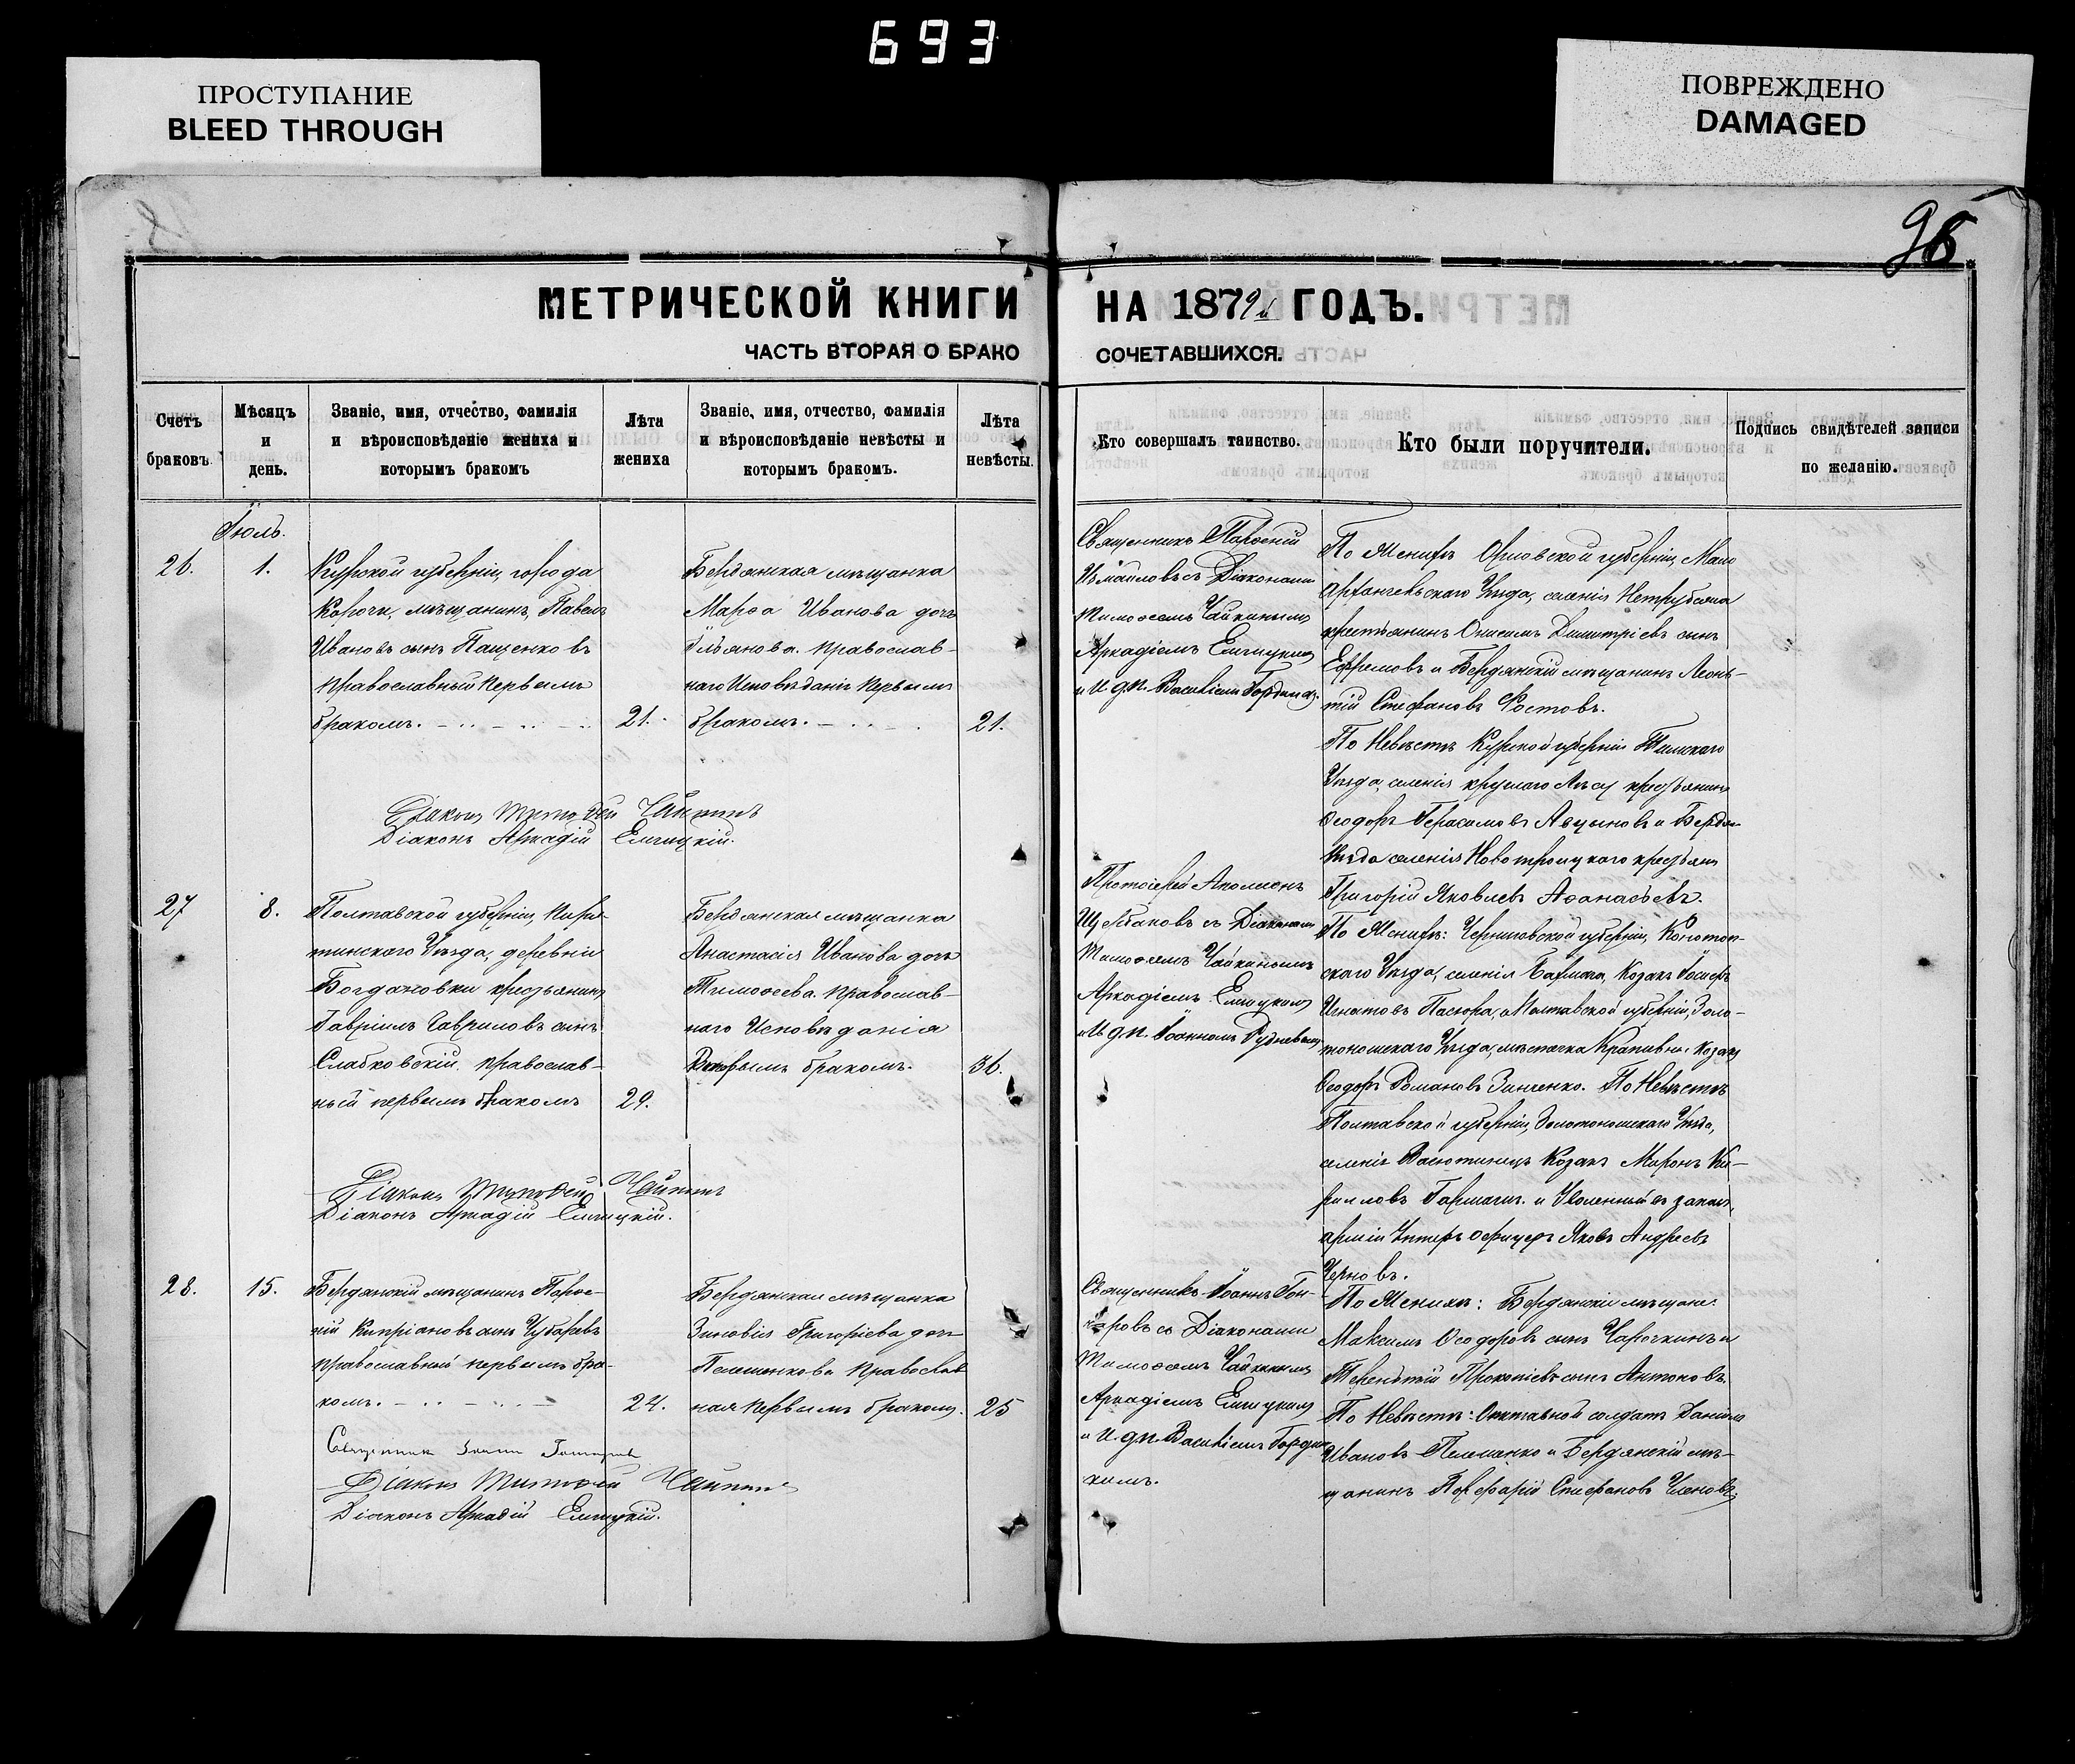 693
ПРОСТУПАНИЕ
BLEED THROUGH
ПОВРЕЖДЕНО
DAMAGED
96
МЕТРИЧЕСКОЙ КНИГИ
НА 1879й ГОДЪ.
ЧАСТЬ ВТОРАЯ О БРАКО
СОЧЕТАВШИХСЯ.
Счетъ
браковъ.
Мѣсяцъ
и
день.
Званіе, имя, отчество, фамилія
и вѣроисповѣданіе жениха и
которымъ бракомъ
Лѣта
жениха
Званіе, имя, отчество, фамилія
и вѣроисповѣданіе невѣсты и
которымъ бракомъ.
Лѣта
невѣсты.
Кто совершалъ таинство.
Кто были поручители.
Подпись свидѣтелей записи
по желанію.
Іюль.
26.
1.
Курской губерніи, города
Корочи, мѣщанинъ, Павелъ
Ивановъ сынъ Пащенковъ
православный первымъ
бракомъ.
21.
Бердянская мѣщанка
Марѳа Иванова дочь
Ульянова. православ-
наго Исповѣданія первымъ
бракомъ.
21.
Священникъ Парѳеній
Измайловъ съ Діаконами
Тимоѳеемъ Чайкинымъ
Аркадіемъ Елчицкимъ
и И. д. п. Василіемъ
По Женихѣ Орловской губерніи, Мало
архангельскаго Уѣзда, селенія
крестьянинъ Онисимъ Димитріевъ сынъ
Ефремовъ и Бердянскій мѣщанинъ Леон-
тій Стефановъ Ростовъ.
По Невѣстѣ Курской губерніи Тимскаго
Уѣзда, селенія крестьянинъ
Ѳеодоръ Герасимовъ и Бердян.
Уѣзда селенія Новотроицкаго крестьян
Григорій Яковлевъ Аѳанасьевъ.
Діаконъ Тимоѳей Чайкинъ
Діаконъ Аркадій Елчицкій.
27
8.
Полтавской губерніи, Пиря-
тинскаго Уѣзда, деревни
Богдановки крестьянинъ
Гавріилъ Гавриловъ сынъ
Слабковскій. православ-
ный первымъ бракомъ
29.
Бердянская мѣщанка
Анастасія Иванова дочь
Тимоѳеева. православ-
наго Исповѣданія
Вторымъ бракомъ.
36.
Протоіерей
Щербаковъ съ Діаконами
Тимоѳеемъ Чайкинымъ
Аркадіемъ Елчицкимъ
и И. д. п. Іоанномъ Рудневымъ
По Женихѣ: Черниговской губерніи, Конотоп-
скаго Уѣзда, селенія Козакъ Іосифъ
Игнатовъ Полтавской губерніи, Золо-
тоношскаго Уѣзда, мѣстечка Крапивны Козакъ
Ѳеодоръ Романовъ Зинченко. По Невѣстѣ
Полтавской губерніи, Золотоношскаго Уѣзда,
селенія Васютинецъ Козакъ Миронъ Ки-
рилловъ и Уволенный въ запасъ
арміи Унтеръ офицеръ Яковъ Андреевъ
Черновъ.
Діаконъ Тимоѳей Чайкинъ
Діаконъ Аркадій Елчицкій.
28.
15.
Бердянскій мѣщанинъ Парѳе-
ній Кипріановъ сынъ Чубаревъ
православный первымъ бра-
комъ.
24.
Бердянская мѣщанка
Зиновія Григоріева дочь
Пелешенкова Православ
ная первымъ бракомъ.
25
Священникъ Іоаннъ Гон-
чаровъ съ Діаконами
Тимоѳеемъ Чайкинымъ
Аркадіемъ Елчицкимъ
и И. д. п. Василіемъ
кимъ.
По Женихѣ: Бердянскіе мѣщане:
Максимъ Ѳеодоровъ сынъ и
Терентій Прокопіевъ сынъ Антоновъ.
По Невѣстѣ: Отставной солдатъ Даніилъ
Ивановъ и Бердянскій мѣ-
щанинъ Порфирій Стефановъ
Священник Іоанн Гончаров
Діаконъ Тимоѳей Чайкинъ
Діаконъ Аркадій Елчицкій.